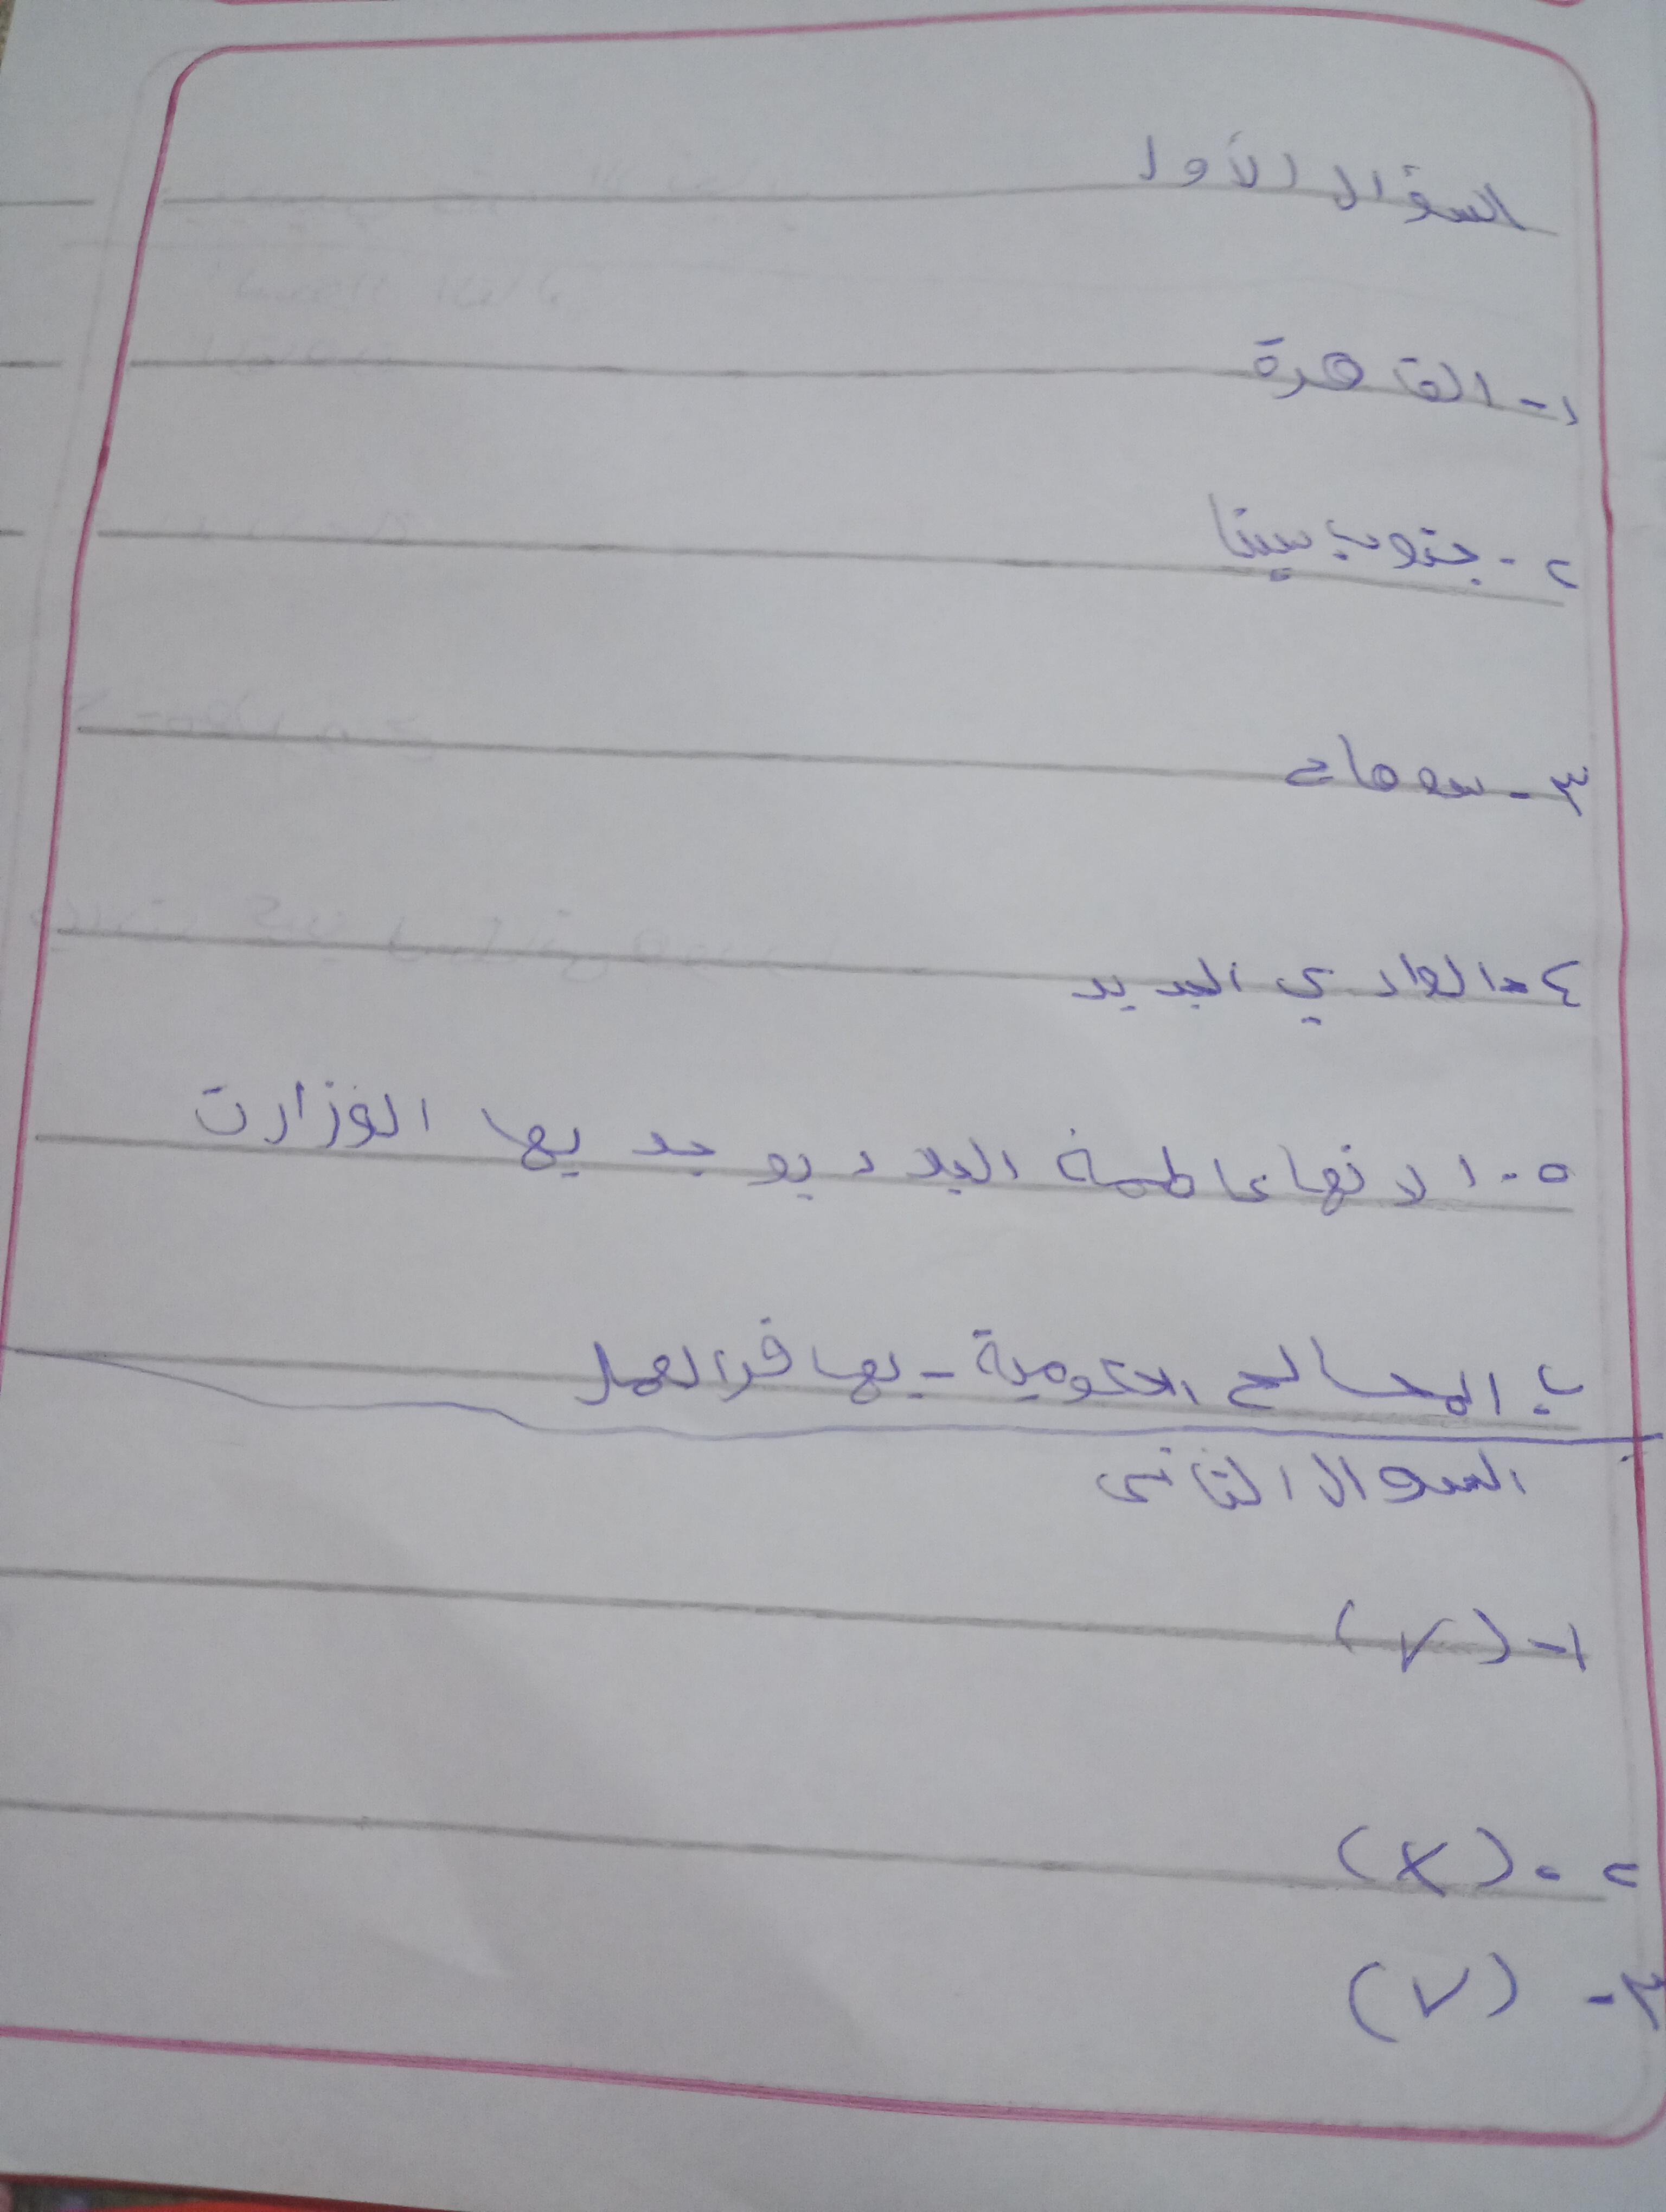 السؤال الأول
١- القاهرة
٢- جنوب سينا
٣- سوهاج
٤- الوادي الجديد
٥- ا لانها عاطمة البلاد يوجد بها الوزارت
ب- المصالح الحكومية - بها فرالعمل
السوال الثانى
١- (✓)
٢- (×)
٣- (✓)